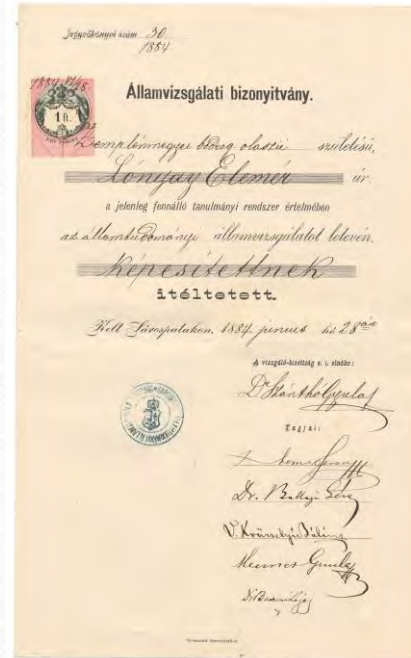 Jegyzőkönyvi szám 30
1884
1884 VI/28
1 ft.
Államvizsgálati bizonyitvány.
Zemplénmegyei bodrog olaszii születésü,
Lónyay Elemér úr
a jelenleg fennálló tanulmányi rendszer értelmében
az államtudományi államvizsgálatot letevén,
képesítettnek
itéltetett.
Kelt Sárospatakon, 1884 junius hó 28án
A vizsgáló-bizottság e. i. elnöke:
Dr Szánthó Gyula
Tagjai:
Dr. Ballagi Géza
V. Kövesdy Bálint
Nemes Gyula